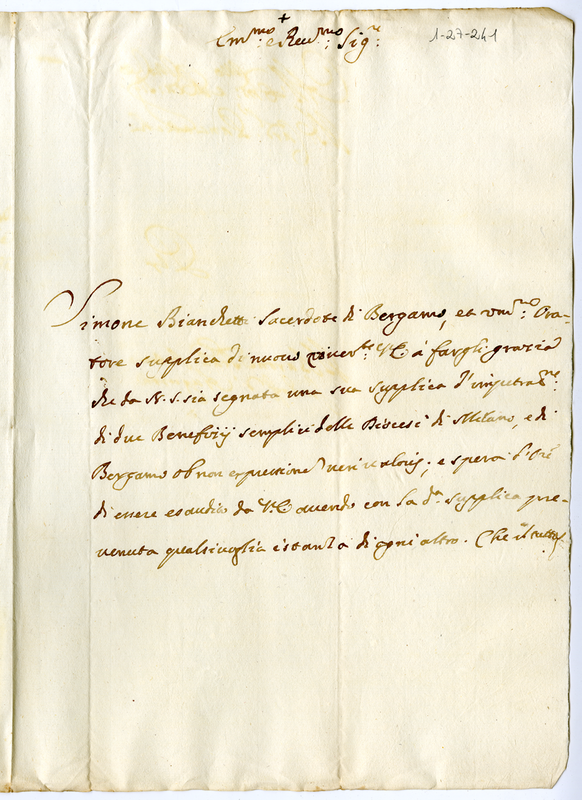 +
Em.mo e Rev.mo Sig.re
1-27-241
Simone Bianchetti Sacerdote di Bergamo, et um.mo Ora-
tore supplica di nuovo river.te V.E. à fargli grazia
che da N. S. sia segnata una sua supplica d'impetraz.ne
di due Beneficij semplici delle Diocesi di Milano, e di
Bergamo ob non expressionem veri valoris; e spera d.o Ore
di essere esaudito da V.E. avendo con la d.a supplica pre-
venuta qualsivoglia istanza di ogni altro. Che il tutto